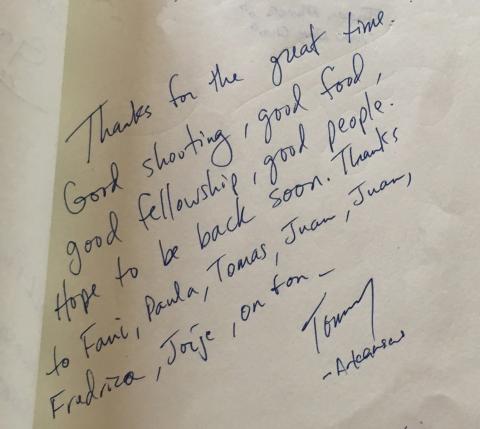 Thanks for the great time.
Good shooting, good food,
good fellowship, good people.
Hope to be back soon. Thanks
to Fani, Paula, Tomas, Juan, Juan,
Fredrica, Jorje, on ton –
Tommy
- Arkansas